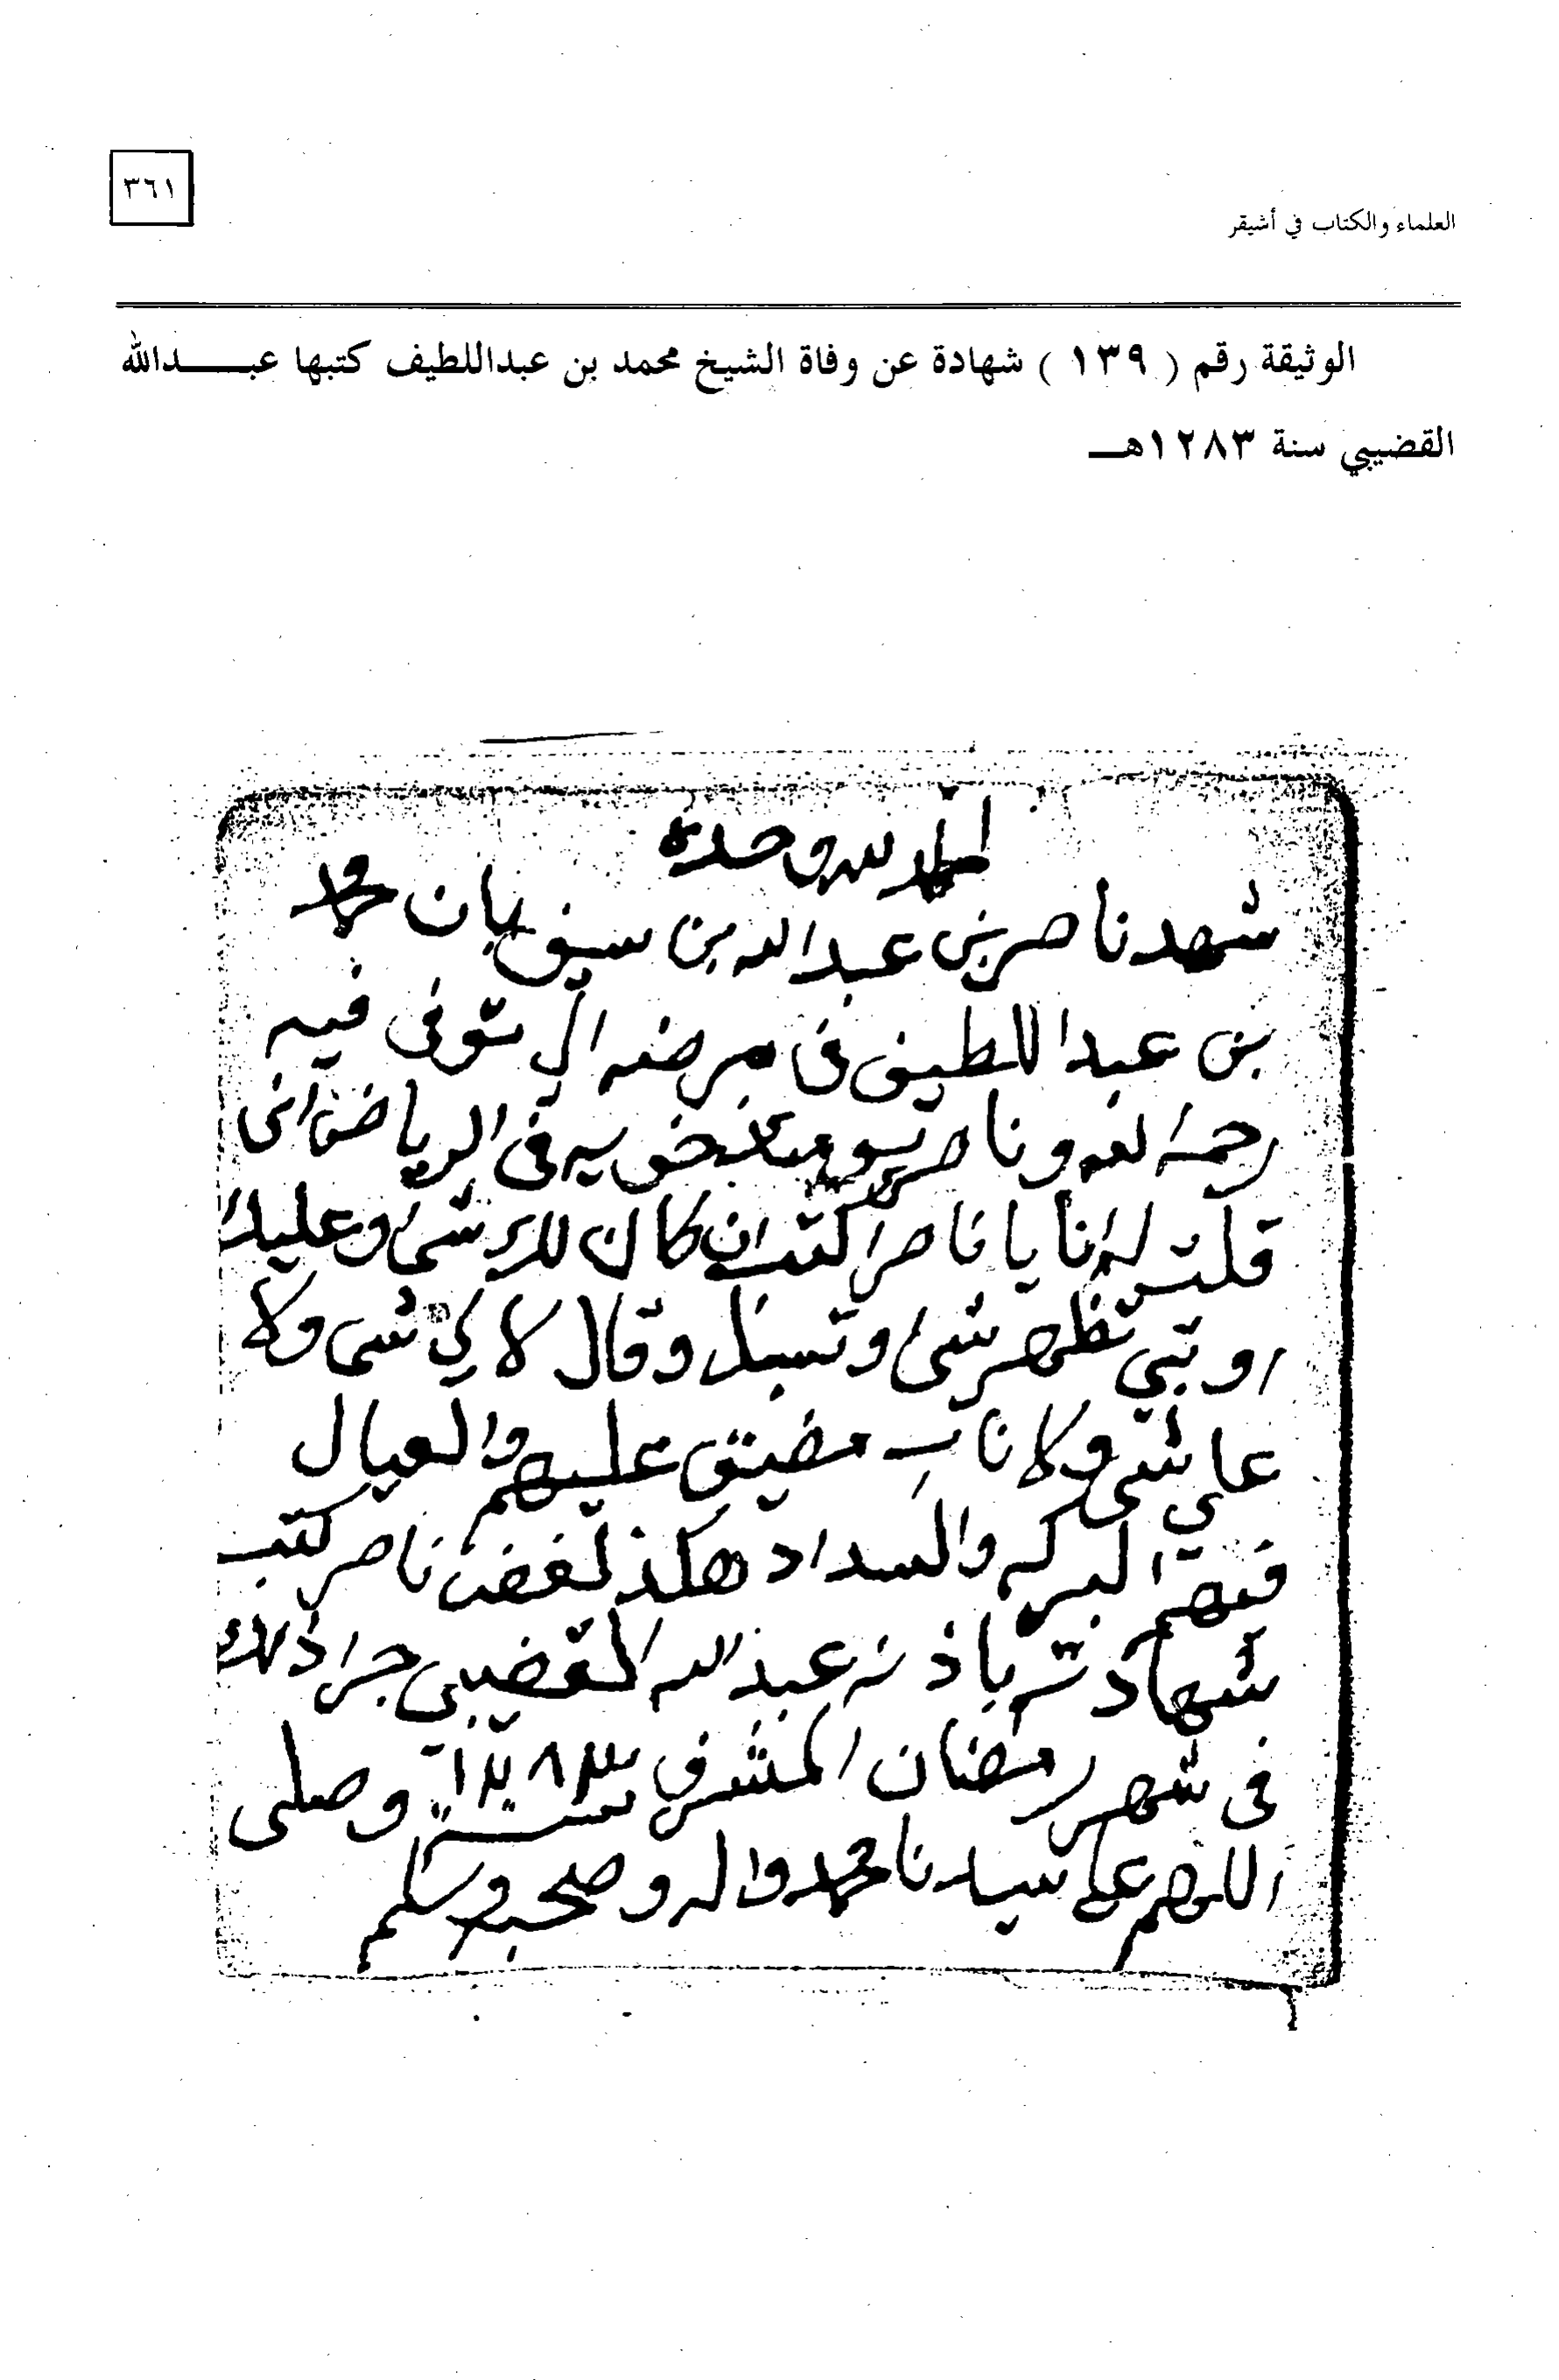 ٣٦١
العلماء والكتاب في أشيقر
الوثيقة رقم ( ١٣٩ ) شهادة عن وفاة الشيخ محمد بن عبداللطيف كتبها عبدالله
القضيبي سنة ١٢٨٣هـ
الحمد لله وحده
شهد ناصر بن عبدالله بن سيف بان محمد
بن عبداللطيف في مرضه ال توفي فيه
رحمة الله وناصر في الرياض اني
قلت له انا يا ناصر اكتب ان كان لك شي او عليك
او تبي تظهر شي وتسبل وقال لا لي شي ولا
علي شي ولا ناب مضيق عليهم والعيال
فيهم البركه والسداد هكذ لفض ناصر كتب
شهادته باذنه عبدالله القضيبي جرا ذلك
في شهر رمضان المشرف سنة ١٢٨٣ وصلى
اللهم على سيدنا محمد واله وصحبه وسلم